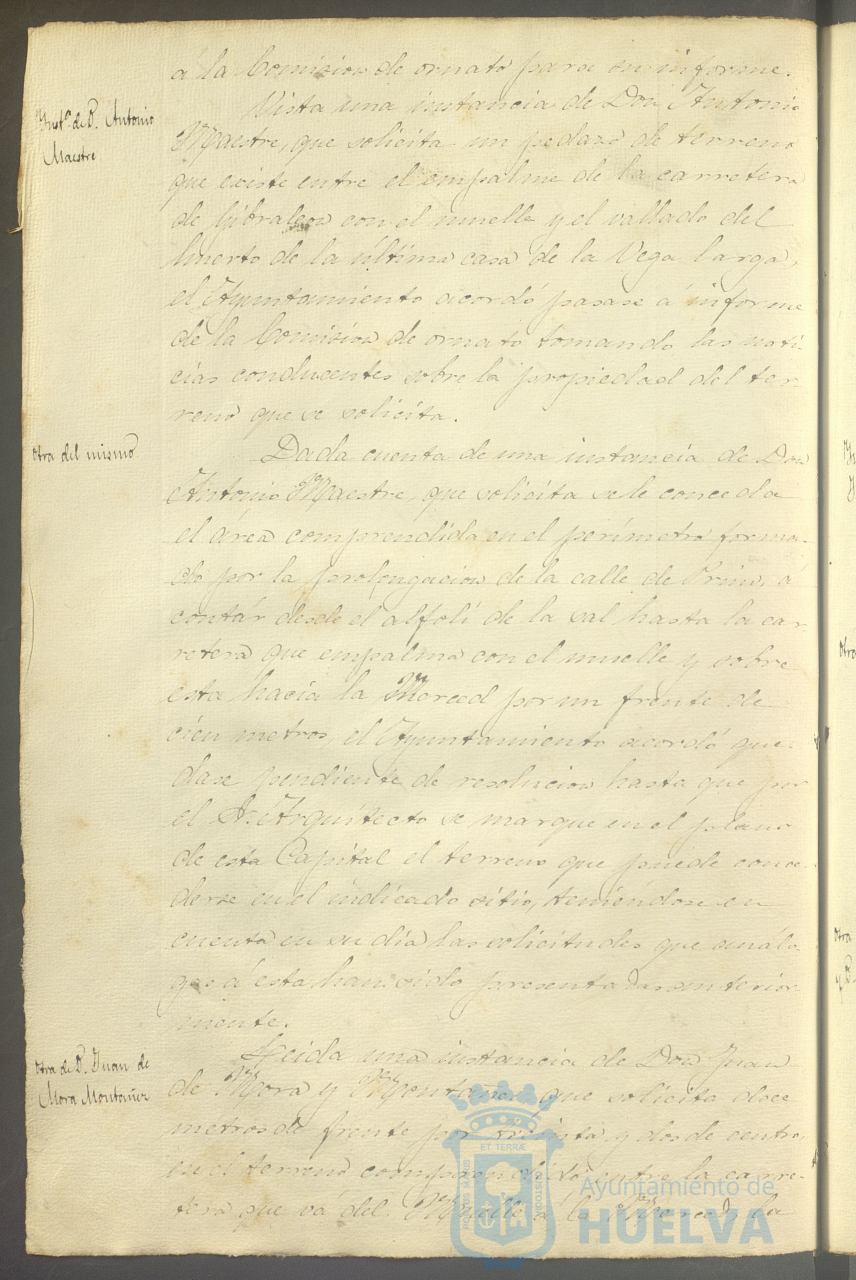 á la Comision de ornato para su informe.
Inst.ª de D. Antonio
Maestre
Vista una instancia de Don Antonio
Maestre, que solicita un pedazo de terreno
que existe entre el empalme de la carretera
de Gibraleon con el muelle y el vallado del
huerto de la última casa de la Vega larga,
el Ayuntamiento acordó pasase á informe
de la Comision de ornato tomando las noti-
cias conducentes sobre la propiedad del ter-
reno que se solicita.
Otra del mismo
Dada cuenta de una instancia de Don
Antonio Maestre, que solicita se le conceda
el área comprendida en el perímetro forma-
do por la prolongacion de la calle de Prim, á
contar desde el alfolí de la sal hasta la car-
retera que empalma con el muelle y sobre
esta hacia la Merced por un frente de
cien metros, el Ayuntamiento acordó que-
dase pendiente de resolucion hasta que por
el Sr. Arquitecto se marque en el plano
de esta Capital el terreno que puede conce-
derse en el indicado sitio, teniéndose en
cuenta en su dia las solicitudes que análo-
gas á esta han sido presentadas anterior-
mente.
Otra de D. Juan de
Mora Montañer
Leida una instancia de Don Juan
de Mora y que solicita doce
metros de frente por treinta y dos de centro,
en el terreno comprendido entre la carre-
tera que vá del Muelle á la Merced, la
ET TERRÆ
PORTUS MARIS
CUSTODIA
Ayuntamiento de
HUELVA